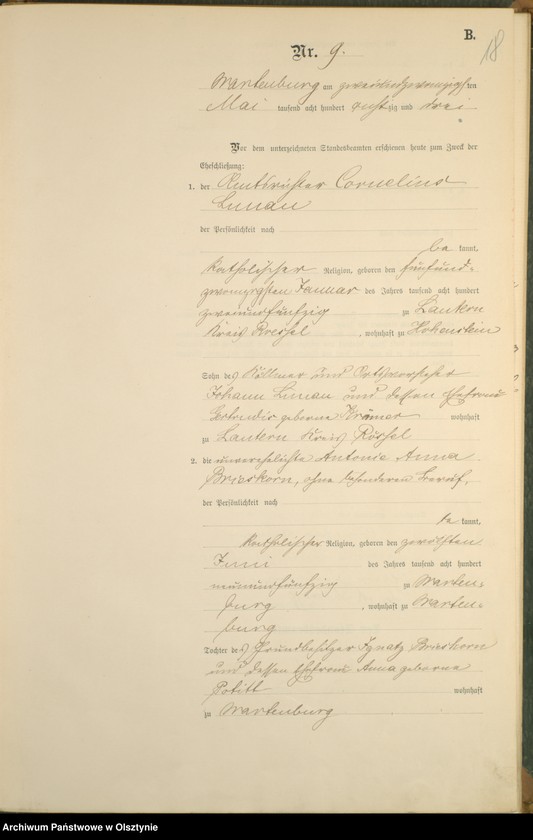 B.
18
Nr. 9.
Wartenburg am zweiundzwanzigsten
Mai tausend acht hundert achtzig und drei
Vor dem unterzeichneten Standesbeamten erschienen heute zum Zweck der
Eheschließung:
1. der Amtsrichter Cornelius
der Persönlichkeit nach
be kannt,
katholischer Religion, geboren den fünfund-
zwanzigsten Januar des Jahres tausend acht hundert
zweiundfünfzig zu Lautern
Kreis Roessel, wohnhaft zu Hohenstein
Sohn des Köllmer und Ortsvorsteher
Johann und dessen Ehefrau
Gertrudis geborne Krämer wohnhaft
zu Lautern Kreis Rössel
2. die unverehelichte Antonie Anna
Brieskorn, ohne besonderen Beruf,
der Persönlichkeit nach
be kannt,
katholischer Religion, geboren den zwölften
Juni des Jahres tausend acht hundert
neunundfünfzig zu Warten-
burg, wohnhaft zu Warten-
burg
Tochter des Grundbesitzer Ignatz Brieskorn
und dessen Ehefrau Anna geborne
wohnhaft
zu Wartenburg
Archiwum Państwowe w Olsztynie